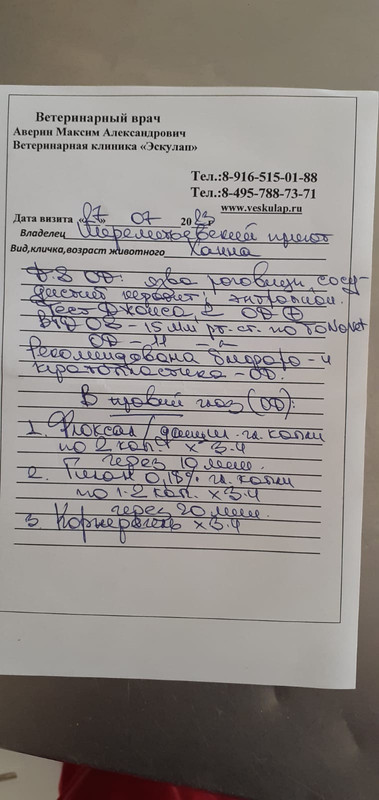 Ветеринарный врач
Аверин Максим Александрович
Ветеринарная клиника «Эскулап»
Тел.:8-916-515-01-88
Тел.:8-495-788-73-71
www.veskulap.ru
Дата визита «27» 07 2023
Владелец Шереметьевский приют
Вид,кличка,возраст животного Ханна
D-S OD: язва роговицы, сосу-
дистый кератит, энтропион.
Тест Джонса 2 OD +
ВГД OS - 15 мм рт. ст. по TonoVet
OD - 11 -"-
Рекомендована блефаро- и
кератопластика - OD.
В правый глаз (OD):
1. Флоксал / данцил - гл. капли
по 2 кап. х 3-4
через 10 мин.
2. Гилан 0,18% гл. капли
по 1-2 кап. х 3-4
через 20 мин.
3. Корнерегель х 3-4